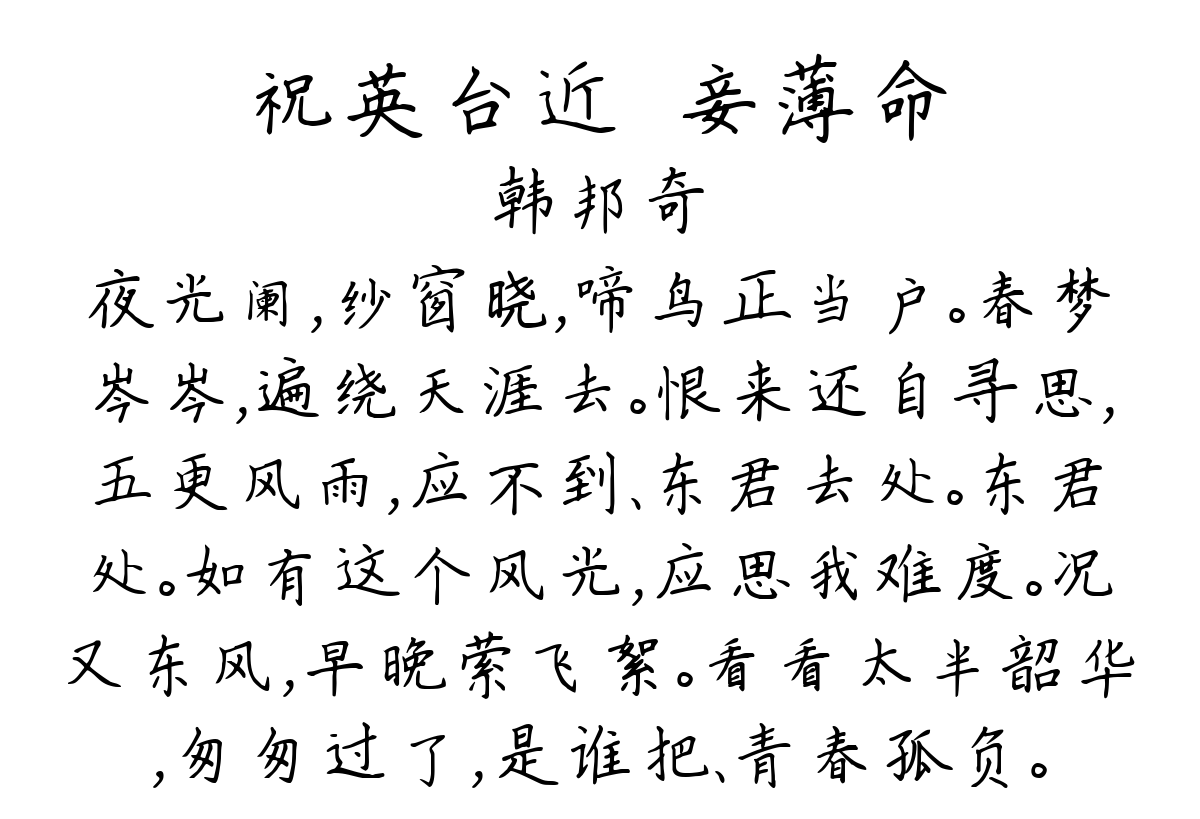 祝英台近 妾薄命
韩邦奇
夜光阑,纱窗晓,啼鸟正当户。春梦
岑岑,遍绕天涯去。恨来还自寻思,
五更风雨,应不到、东君去处。东君
处。如有这个风光,应思我难度。况
又东风,早晚萦飞絮。看看太半韶华
,匆匆过了,是谁把、青春孤负。